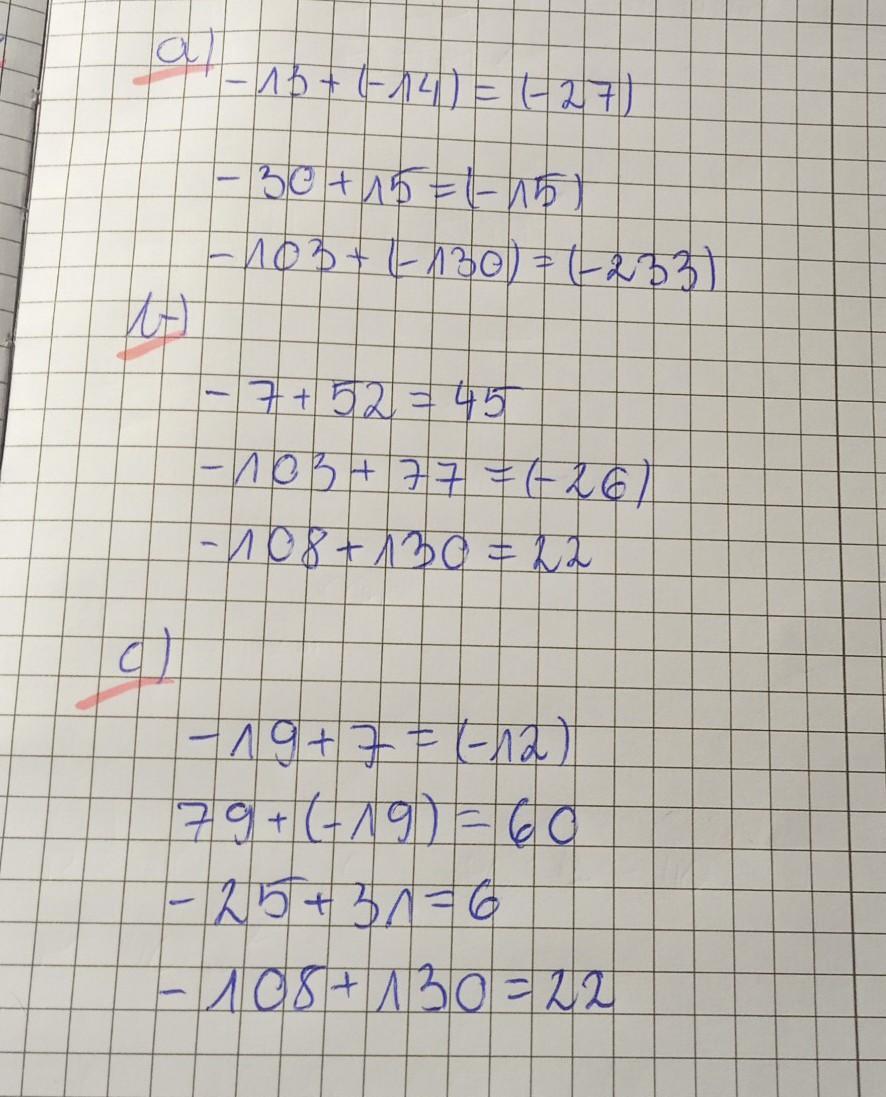 a)
-13+(-14)=(-27)
-30+15=(-15)
-103+(-130)=(-233)
b)
-7+52=45
-103+77=(-26)
-108+130=22
c)
-19+7=(-12)
79+(-19)=60
-25+31=6
-108+130=22